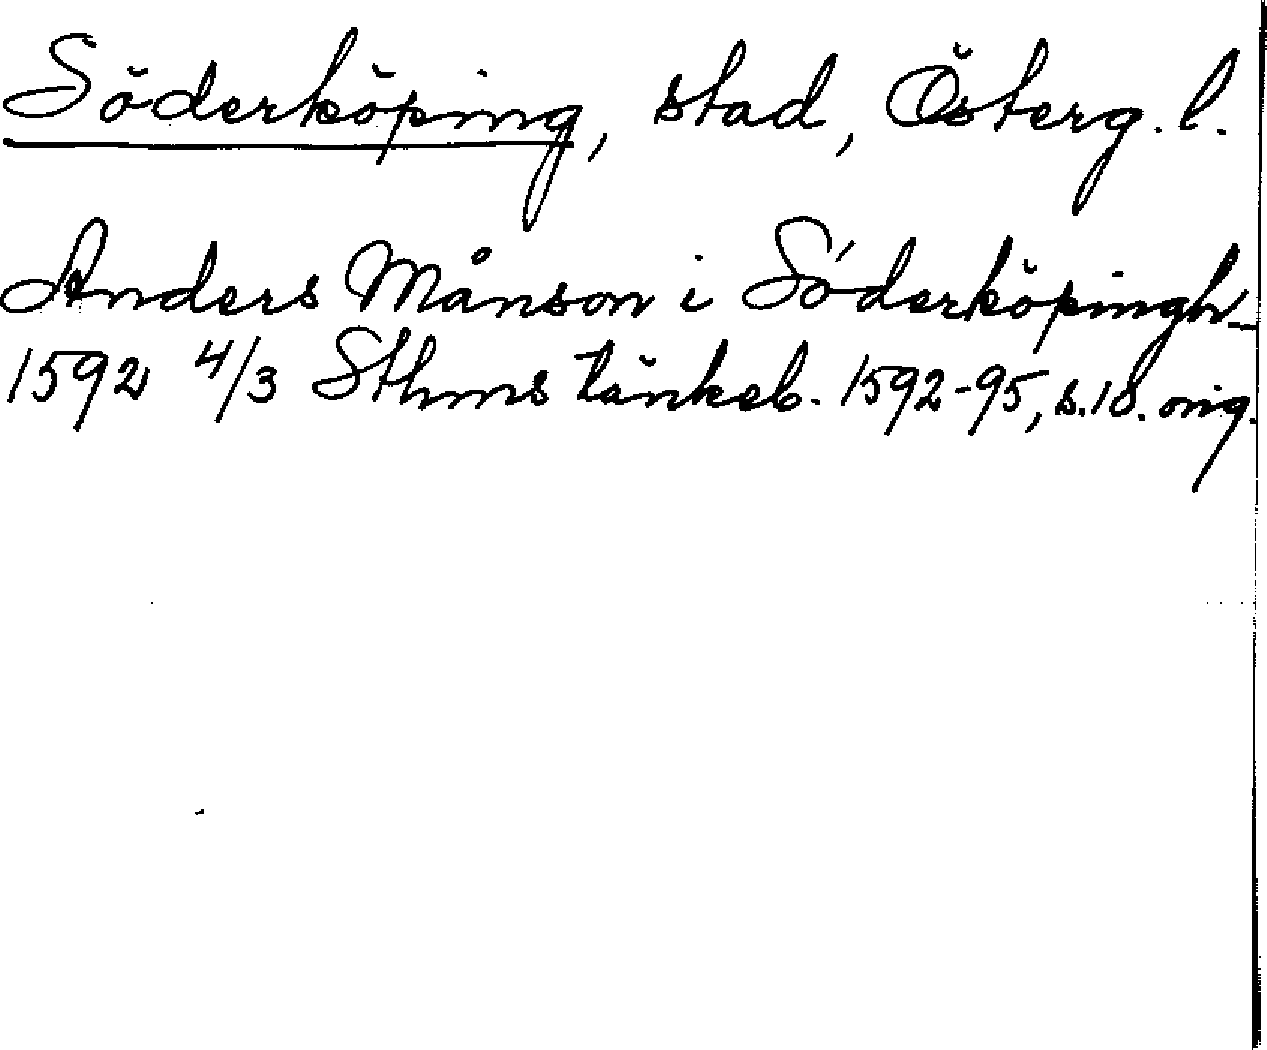 Söderköping, stad, Österg. l.
Anders Månson i Söderköpingh_
1592 4/3 Sthms tänkeb. 1592-95, s.18. orig.